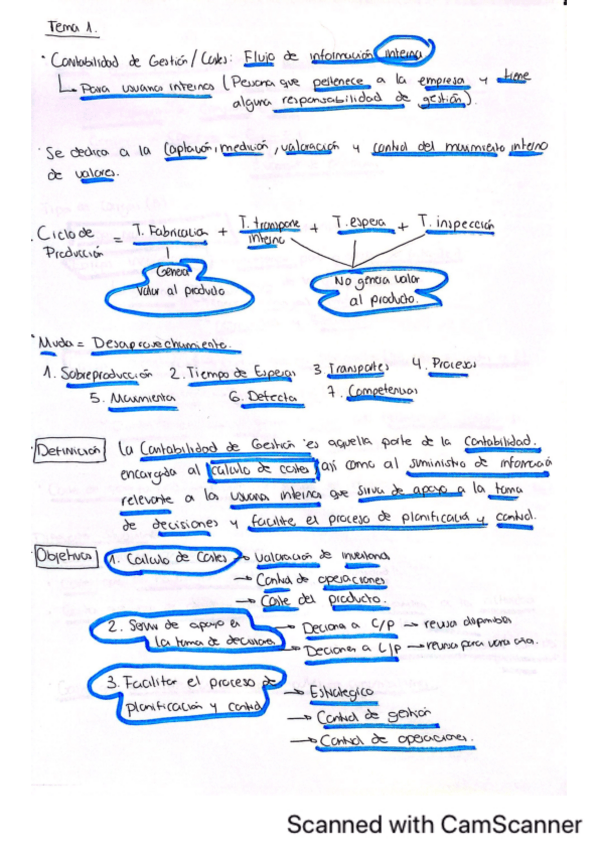 Tema 1.
· Contabilidad de Gestión / Costes: Flujo de información interna
Para usuarios internos (Persona que pertenece a la empresa y tiene
alguna responsabilidad de gestión).
· Se dedica a la captación, medición, valoración y control del movimiento interno
de valores.
· Ciclo de Producción = T. Fabricación + T. transporte interno + T. espera + T. inspección
Genera valor al producto
No genera valor al producto.
· Muda = Desaprovechamiento.
1. Sobreproducción 2. Tiempo de Esperas 3 Transportes 4. Procesos
5. Movimientos 6. Defectos 7. Competencias
· Definición La Contabilidad de Gestión es aquella parte de la contabilidad.
encargada al calculo de costes, así como al suministro de información
relevante a los usuarios internos que sirva de apoyo a la toma
de decisiones y facilite el proceso de planificación y control.
Objetivos 1. Calculo de Costes → Valoración de inventarios
→ Control de operaciones
→ Coste del producto.
2. Servir de apoyo en → Decisiones a C/P → recursos disponibles
la toma de decisiones → Decisiones a L/P → recursos para
3. Facilitar el proceso de → Estrategico
planificación y control → Control de gestión
→ Control de operaciones.
Scanned with CamScanner